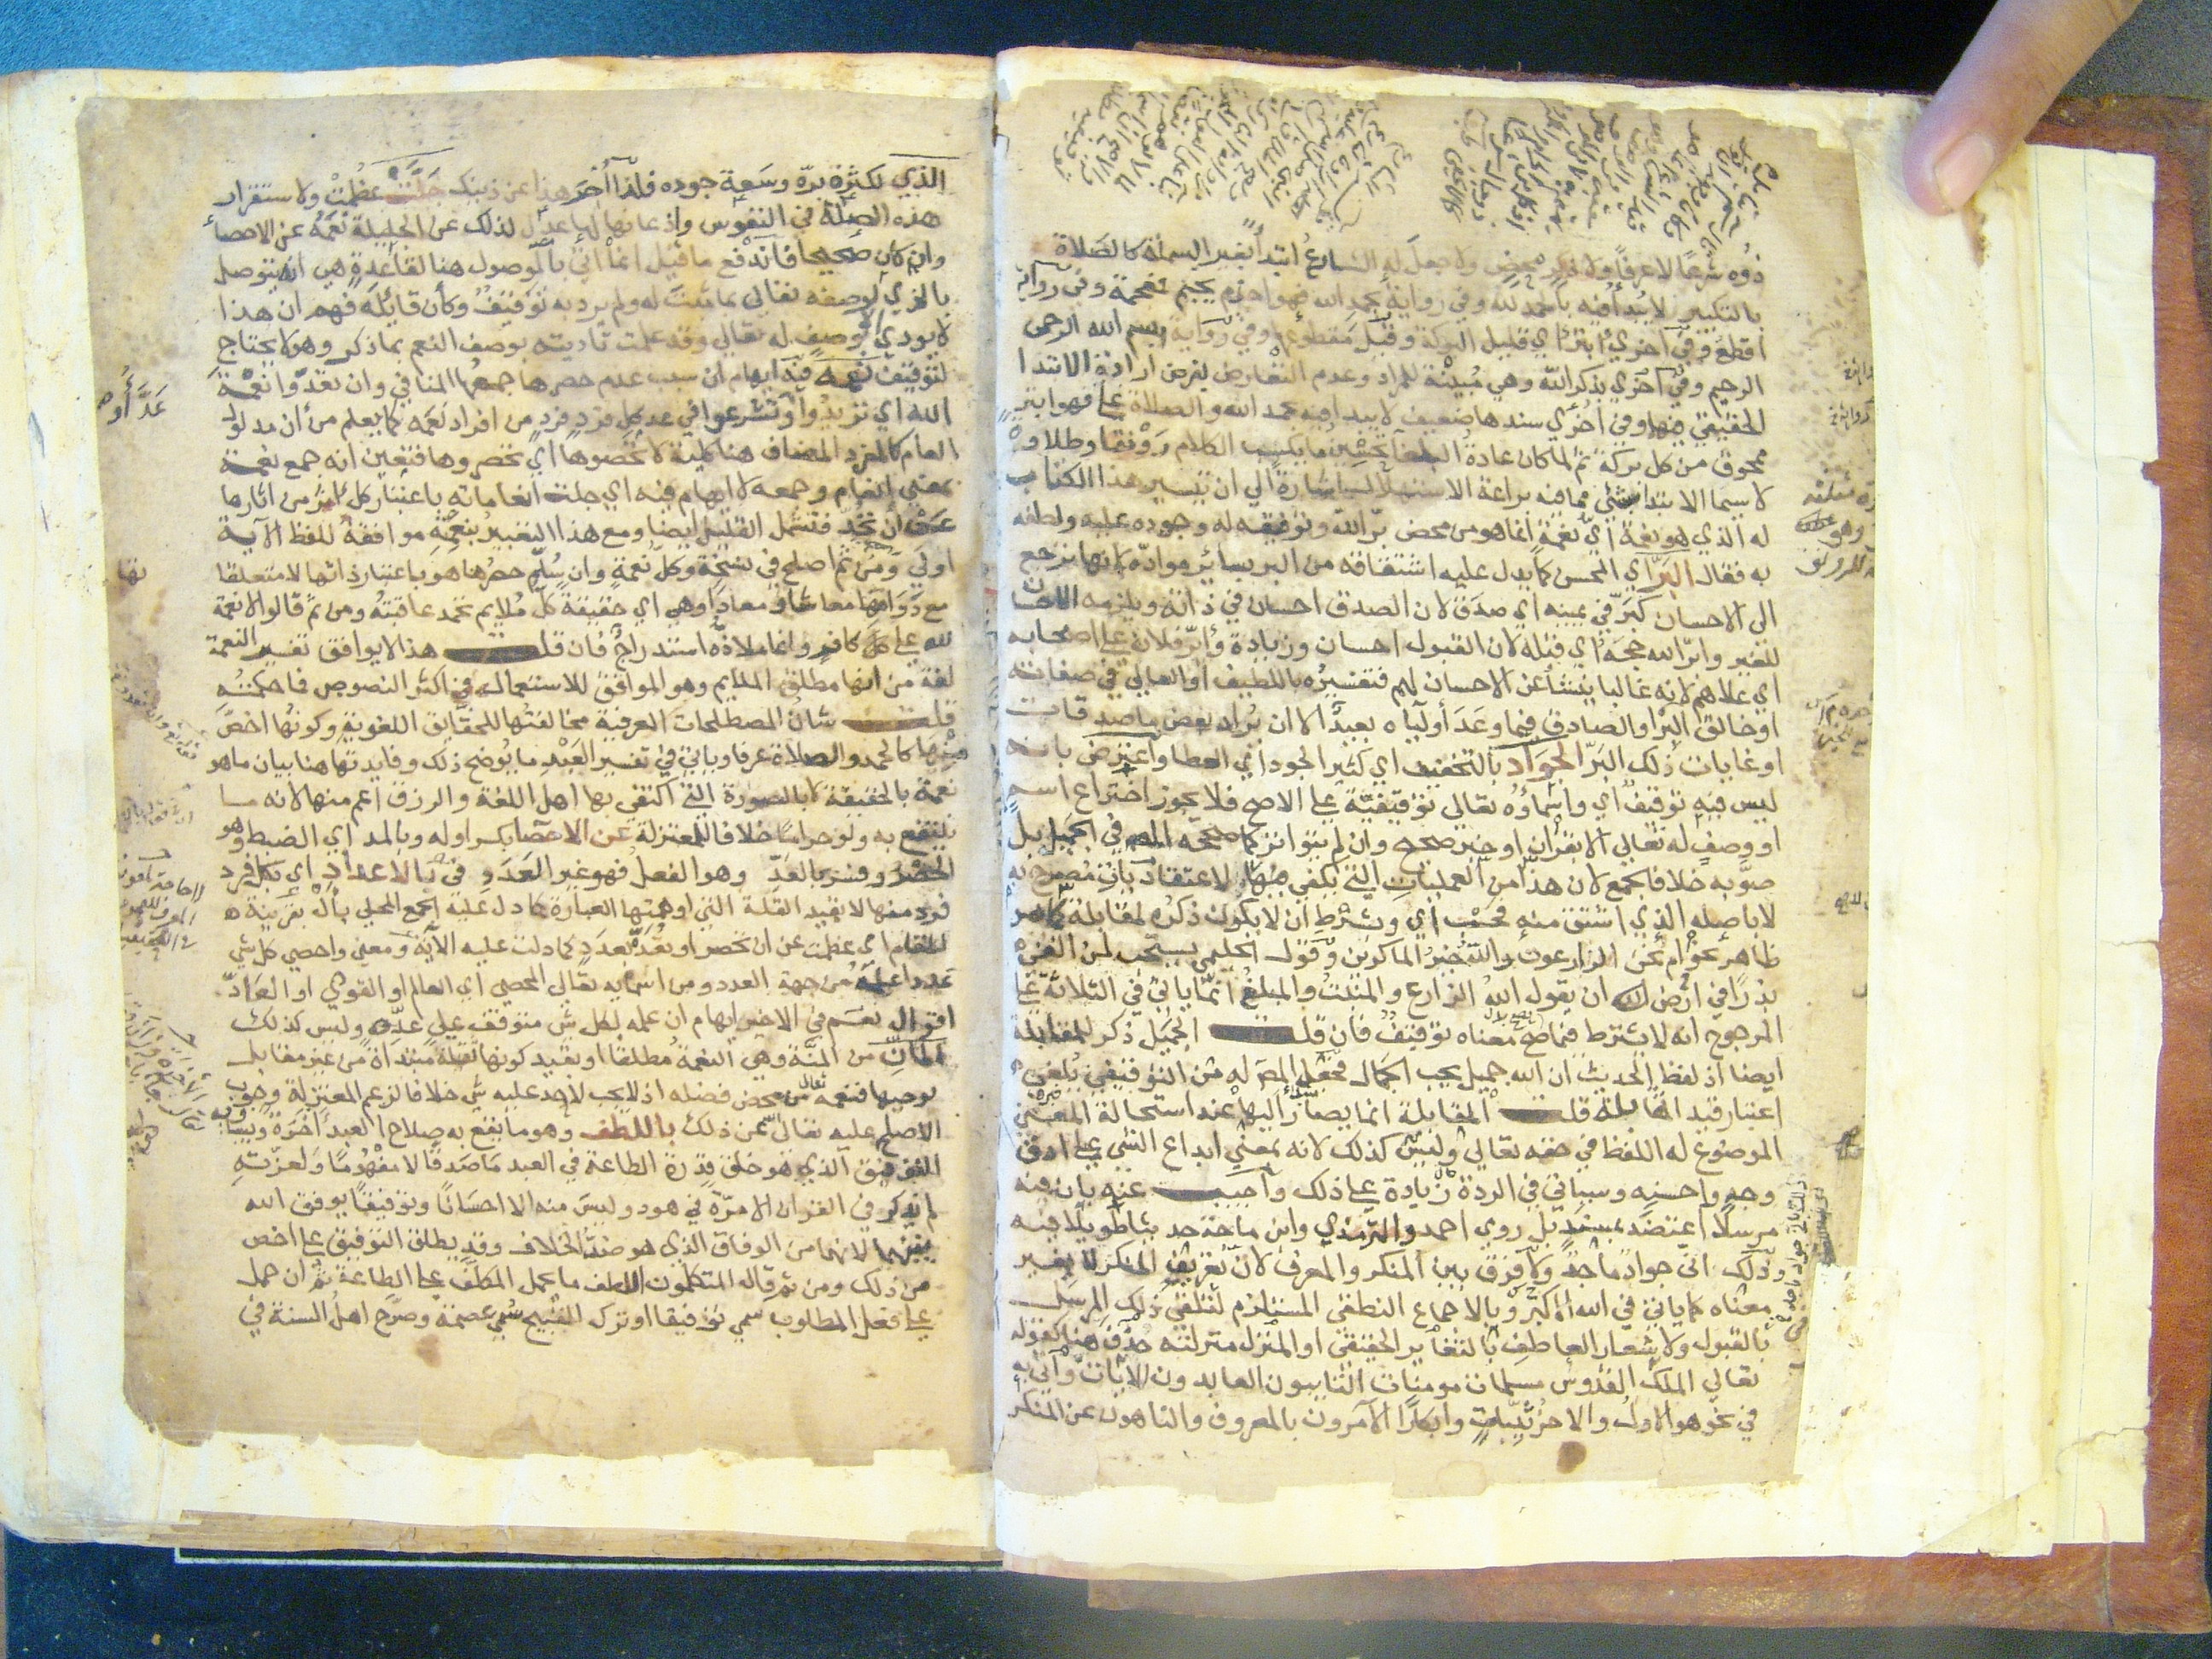 ذوه شرعا لا عرفا ولا ذكر محض ولا جعل له الشارع ابتدأ بغير البسملة كالصلاة
بالتكبير لا يبدأ فيه بالحمد لله وفي رواية بحمد الله فهو اجذم بجيم فمعجمة وفي رواية
اقطع وفي اخري ابتر اي قليل البركة وقيل مقطوعها وفي رواية ببسم الله الرحمن
الرحيم وفي اخري بذكر الله وهي مبينة للمراد وعدم التعارض بفرض ارادة الابتدا
الحقيقي فيها وفي اخري سندها ضعيف لا يبدا فيه بحمد الله والصلاة علي فهو ابتر
ممحوق من كل بركة ثم لما كان عادة البلغا تحسين ما يكسب الكلام رونقا وطلاوة
لاسيما الابتدا بشئ مما فيه براعة الاستهلال اشارة الي ان تيسير هذا الكتاب
له الذي هو نعمة اي نعمة انما هو من محض بر الله وتوفيقه له وجوده عليه ولطفه
به فقال البر اي المحسن كما يدل عليه اشتقاقه من البر بسائر موادّه لانها ترجع
الي الاحسان كبر في يمينه اي صدق لان الصدق احسان في ذاته ويلزمه الاحسان
للغير وابر الله حجه اي قبله لان القبول احسان وزيادة وابر فلان علي اصحابه
اي علاهم لانه غالبا ينشأ عن الاحسان لهم فتفسيره باللطيف او العالي في صفاته
او خالق البر او الصادق فيما وعد أولياه بعيد الا ان يراد بعض ماصدقات
او غايات ذلك البر الجواد بالتخفيف اي كثير الجود اي العطا واعترض بانه
ليس فيه توقيف اي واسماؤه تعالي توقيفية علي الاصح فلا يجوز اختراع اسم
او وصف له تعالي الا بقران او خبر صحيح وان لم يتواتر كما صححه المص في الجميل بل
صوبه خلافا لجمع لان هذا من العمليات التي يكفي فيها لا اعتقاديات مصرح به
لا باصله الذي اشتق منه فحسب اي وبشرط ان لا يكون ذكره لمقابلة كما هو
ظاهر نحو ام نحن الزارعون والله خير الماكرين وقول الحليمي يستحب لمن القي
بذرا في ارض ان يقول الله الزارع والمنبت والمبلغ انما ياتي في الثلاثة علي
المرجوح انه لا يشترط فيما صح معناه توقيف فان قلت الجميل ذكر لمقابلة
ايضا اذ لفظ الحديث ان الله جميل يحب الجمال فجعل المص له من التوقيفي يلغي
اعتبار قيد المقابلة قلت المقابلة انما يصار اليها عند استحالة المعني
الموضوع له اللفظ في حقه تعالي وليس كذلك لانه بمعني ابداع الشي علي ادق
وجه واحسنه وسياتي في الردة زيادة علي ذلك واجيب عنه بان فيه
مرسلا اعتضد بمسند بل روي احمد والترمذي وابن ماجة حديثا طويلا فيه
وذلك اني جواد ماجد ولا فرق بين المنكر والمعرف لان تعريف المنكر لا يغير
معناه كما ياتي في الله اكبر وبالاجماع النطقي المستلزم لتلقي ذلك المرسل
بالقبول ولاشعار العاطف بالتغاير الحقيقي او المنزل منزلته حذف هنا كقوله
تعالي الملك القدوس مسلمات مومنات التايبون العابدون الايات وأتي به
في نحو هو الاول والاخر ثيبات وابكارا الامرون بالمعروف والناهون عن المنكر
الذي لكثرة بره وسعة جوده فلذا أخر هذا عن ذينك جلت عظمت ولاستقرار
هذه الصلة في النفوس واذعانها لها عدل لذلك عن الجليلة نعمه عن الاحصا
وان كان صحيحا فاندفع ما قيل انما اتي بالموصول هنا لقاعدة هي انه يتوصل
بالذي لوصفه تعالي بما ثبت له ولم يرد به توقيف وكأن قائله فهم ان هذا
لا يودي الوصف له تعالي وقد علمت تاديته بوصف النعم بما ذكر وهو لا يحتاج
لتوقيف نعمه فيه ايهام ان سبب عدم حصرها جمعها المنافي وان تعدوا نعمة
الله اي تريدوا او تشرعوا في عد كل فرد فرد من افراد نعمه كما يعلم من أن مدلول
العام كالمفرد المضاف هنا كلية لا تحصوها اي تحصروها فتعين انه جمع نعمة
بمعني انعام وجمعه لا ايهام فيه اي جلت انعاماته باعتبار كل اثر من اثارها
عن ان تحد فتشمل القليل ايضا ومع هذا التعبير بنعمة موافقة للفظ الآية
اولي ومن ثم اصلح في نسخة وكل نعمة وان سلم حصرها هو باعتبار ذاتها لا متعلقا
مع دوامها معاشا ومعادا وهي اي حقيقة كل ملايم تحمد عاقبته ومن ثم قالوا لا نعمة
لله علي كافر وانما ملاذه استدراج فان قلت هذا لا يوافق تفسير النعمة
لغة من انها مطلق الملايم وهو الموافق للاستعمال في اكثر النصوص فما حكمته
قلت شان المصطلحات العرفية مخالفتها للحقائق اللغوية وكونها اخص
منها كالحمد والصلاة عرفا وياتي في تفسير العبد ما يوضح ذلك وفايدتها هنا بيان ما هو
نعمة بالحقيقة لا بالصورة التي اكتفي بها اهل اللغة والرزق اعم منها لانه ما
ينتفع به ولو حراما خلافا للمعتزلة عن الاحصا بكسر اوله وبالمد اي الضبط وهو
الحصر وفسر بالعد وهو الفعل فهو غير العدد في بالاعداد اي بكل فرد
فرد منها لا تفيد القلة التي اوهمتها العبارة كما دل علية الجمع المحلي بأل بقرينة
المقام اي عظمت عن ان تحصر او تعد بعدد كما دلت عليه الاية ومعني واحصي كل شي
عددا علمه من جهة العدد ومن اسمايه تعالي المحصي اي العالم او القوي او العادّ
اقوال نعم في الاخير ايهام ان علمه بكل شي متوقف علي عدّه وليس كذلك
المان من المنة وهي النعمة مطلقا او بقيد كونها ثقيلة مبتدأة من غير مقابل
يوجبها فنعمه تعالي من محض فضله اذ لا يجب لاحد عليه شي خلافا لزعم المعتزلة وجوب
الاصلح عليه تعالي عن ذلك باللطف وهو ما يقع به صلاح العبد اخرة
التوفيق الذي هو خلق قدرة الطاعة في العبد ماصدقا لا مفهوما ولعزته
لم يذكر في القران الا مرة في هود وليس منه الا احسانا وتوفيقا يوفق الله
بينهما لانهما من الوفاق الذي هو ضد الخلاف وقد يطلق التوفيق علي اخص
من ذلك ومن ثم قاله المتكلمون اللطف ما يحمل المكلف علي الطاعة ثم ان حمل
علي فعل المطلوب سمي توفيقا او ترك القبيح سمي عصمة وصرح اهل السنة في